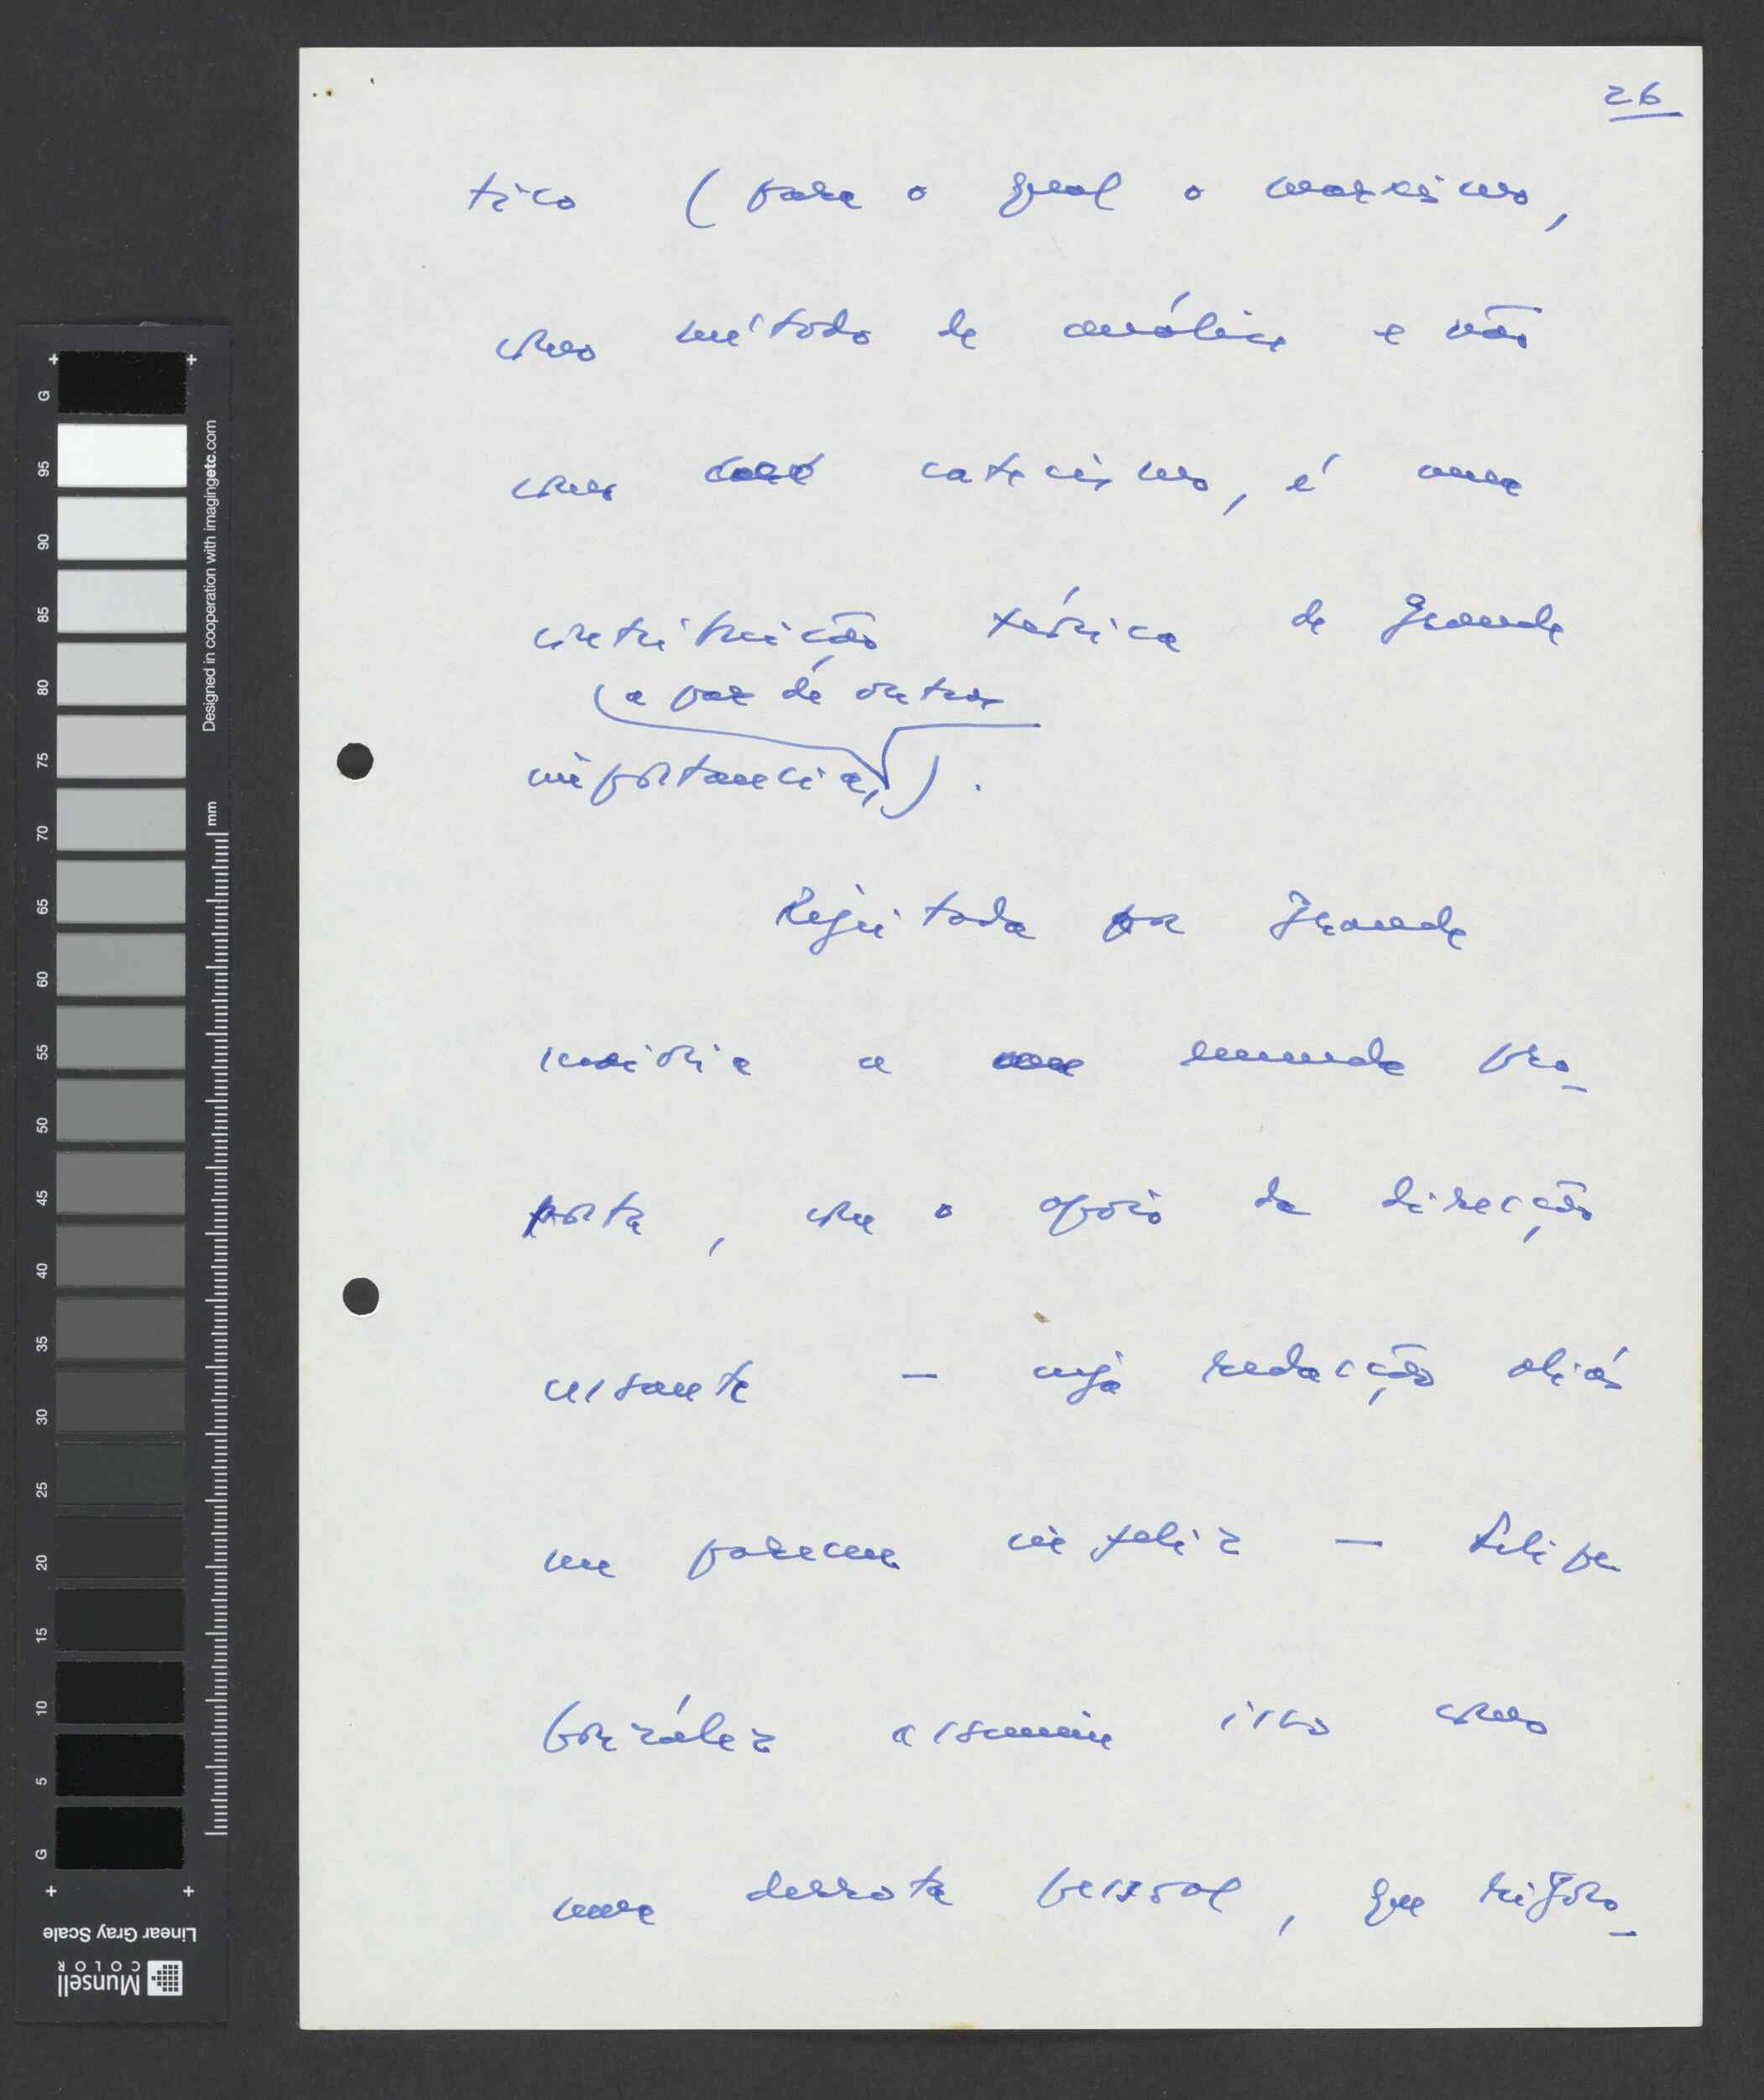 26
tico (para o qual o marxismo,
como método de análise e não
como catecismo, é uma
contribuição teórica de grande
(a par de outras
importancia,).
Rejeitada por grande
maioria a emenda pro-
posta, com o apoio da direcção
cessante — cuja redacção aliás
me pareceu infeliz — Felipe
González assumiu isso como
uma derrota pessoal, que rigoro-
G
95
90
85
80
75
70
65
60
55
50
45
40
35
30
25
20
15
10
5
G
mm
Designed in cooperation with imagingetc.com
Linear Gray Scale
Munsell
COLOR